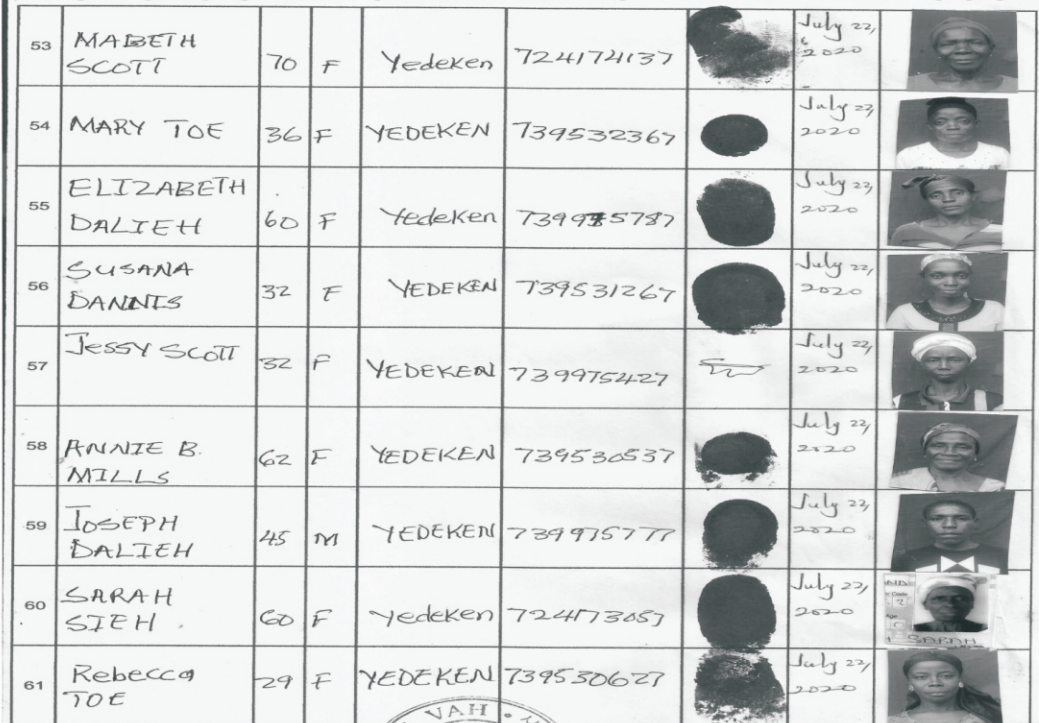 53 MABETH SCOTT 70 F Yedeken 724174137 July 22, 2020
54 MARY TOE 36 F YEDEKEN 739532367 July 22, 2020
55 ELIZABETH DALIEH 60 F Yedeken 739975787 July 22, 2020
56 SUSANA DANNIS 32 F YEDEKEN 739531267 July 22, 2020
57 JESSY SCOTT 32 F YEDEKEN 739975427 July 22, 2020
58 ANNIE B. MILLS 62 F YEDEKEN 739530537 July 22, 2020
59 JOSEPH DALIEH 45 M YEDEKEN 739975777 July 22, 2020
60 SARAH SIEH 60 F Yedeken 724173057 July 22, 2020
Code
Age
SARAH
61 Rebecca TOE 29 F YEDEKEN 739530627 July 22, 2020
VAH